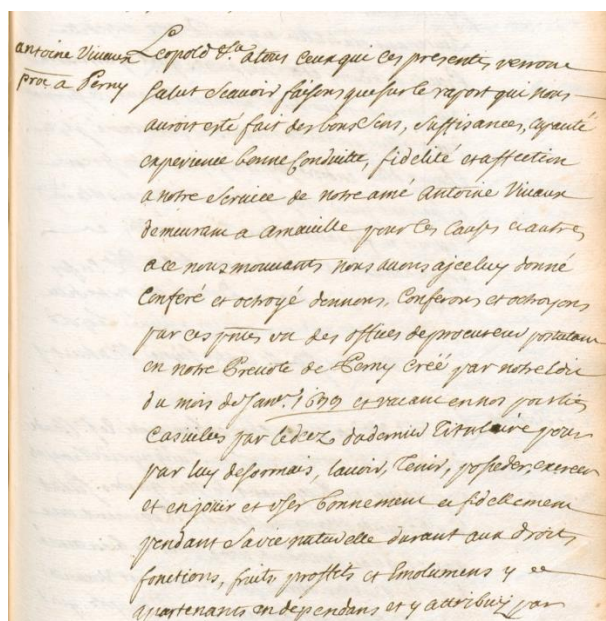 antoine Vivaux
proc. a Perny
Leopold &.a a tous ceux qui ces presentes verront
salut scavoir faisons que sur le raport qui nous
auroit esté fait des bons sens, suffisances, capacité
experience bonne conduitte, fidelité et affection
a notre service de notre amé Antoine Vivaux
demeurant a arnaville pour ces causes et autres
a ce nous mouvants nous avons a jceluy donné
conferé et octroyé donnons, conferons et octroyons
par ces pntes un des offices de procureur postulant
en notre Prevoté de Perny créé par notre Edit
du mois de Janv.r 1699 et vacant en nos parties
casuelles par le decez du dernier titulaire pour
par luy desormais, lavoir, tenir, posseder, exercer
et en jouir et user bonnement et fidellement
pendant sa vie naturelle durant aux droits,
fonctions, fruits, proffits et Emolumens y
apartenants en dependans et y attribuez par